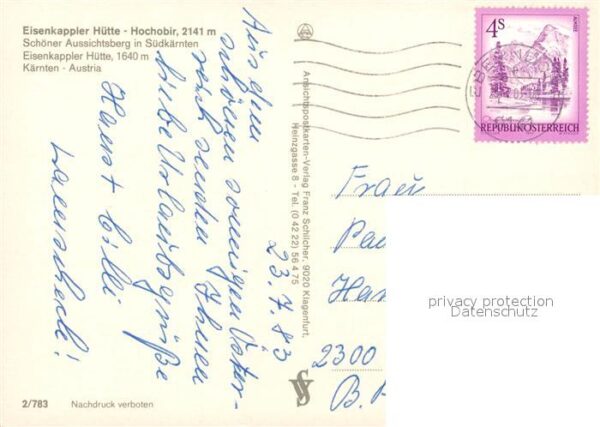 Eisenkappler Hütte - Hochobir, 2141 m
Schöner Aussichtsberg in Südkärnten
Eisenkappler Hütte, 1640 m
Kärnten - Austria
23.7.83
Aus dem
schönen sonnigen Öster-
reich senden Ihnen
liebe Urlaubsgrüße
Hans + Cilli
2/783
Nachdruck verboten
Ansichtspostkarten-Verlag Franz Schilcher, 9020 Klagenfurt,
Heinzgasse 8 - Tel. (0 42 22) 56 4 75
4S
REPUBLIK ÖSTERREICH
Frau
Pau
2300
privacy protection
Datenschutz